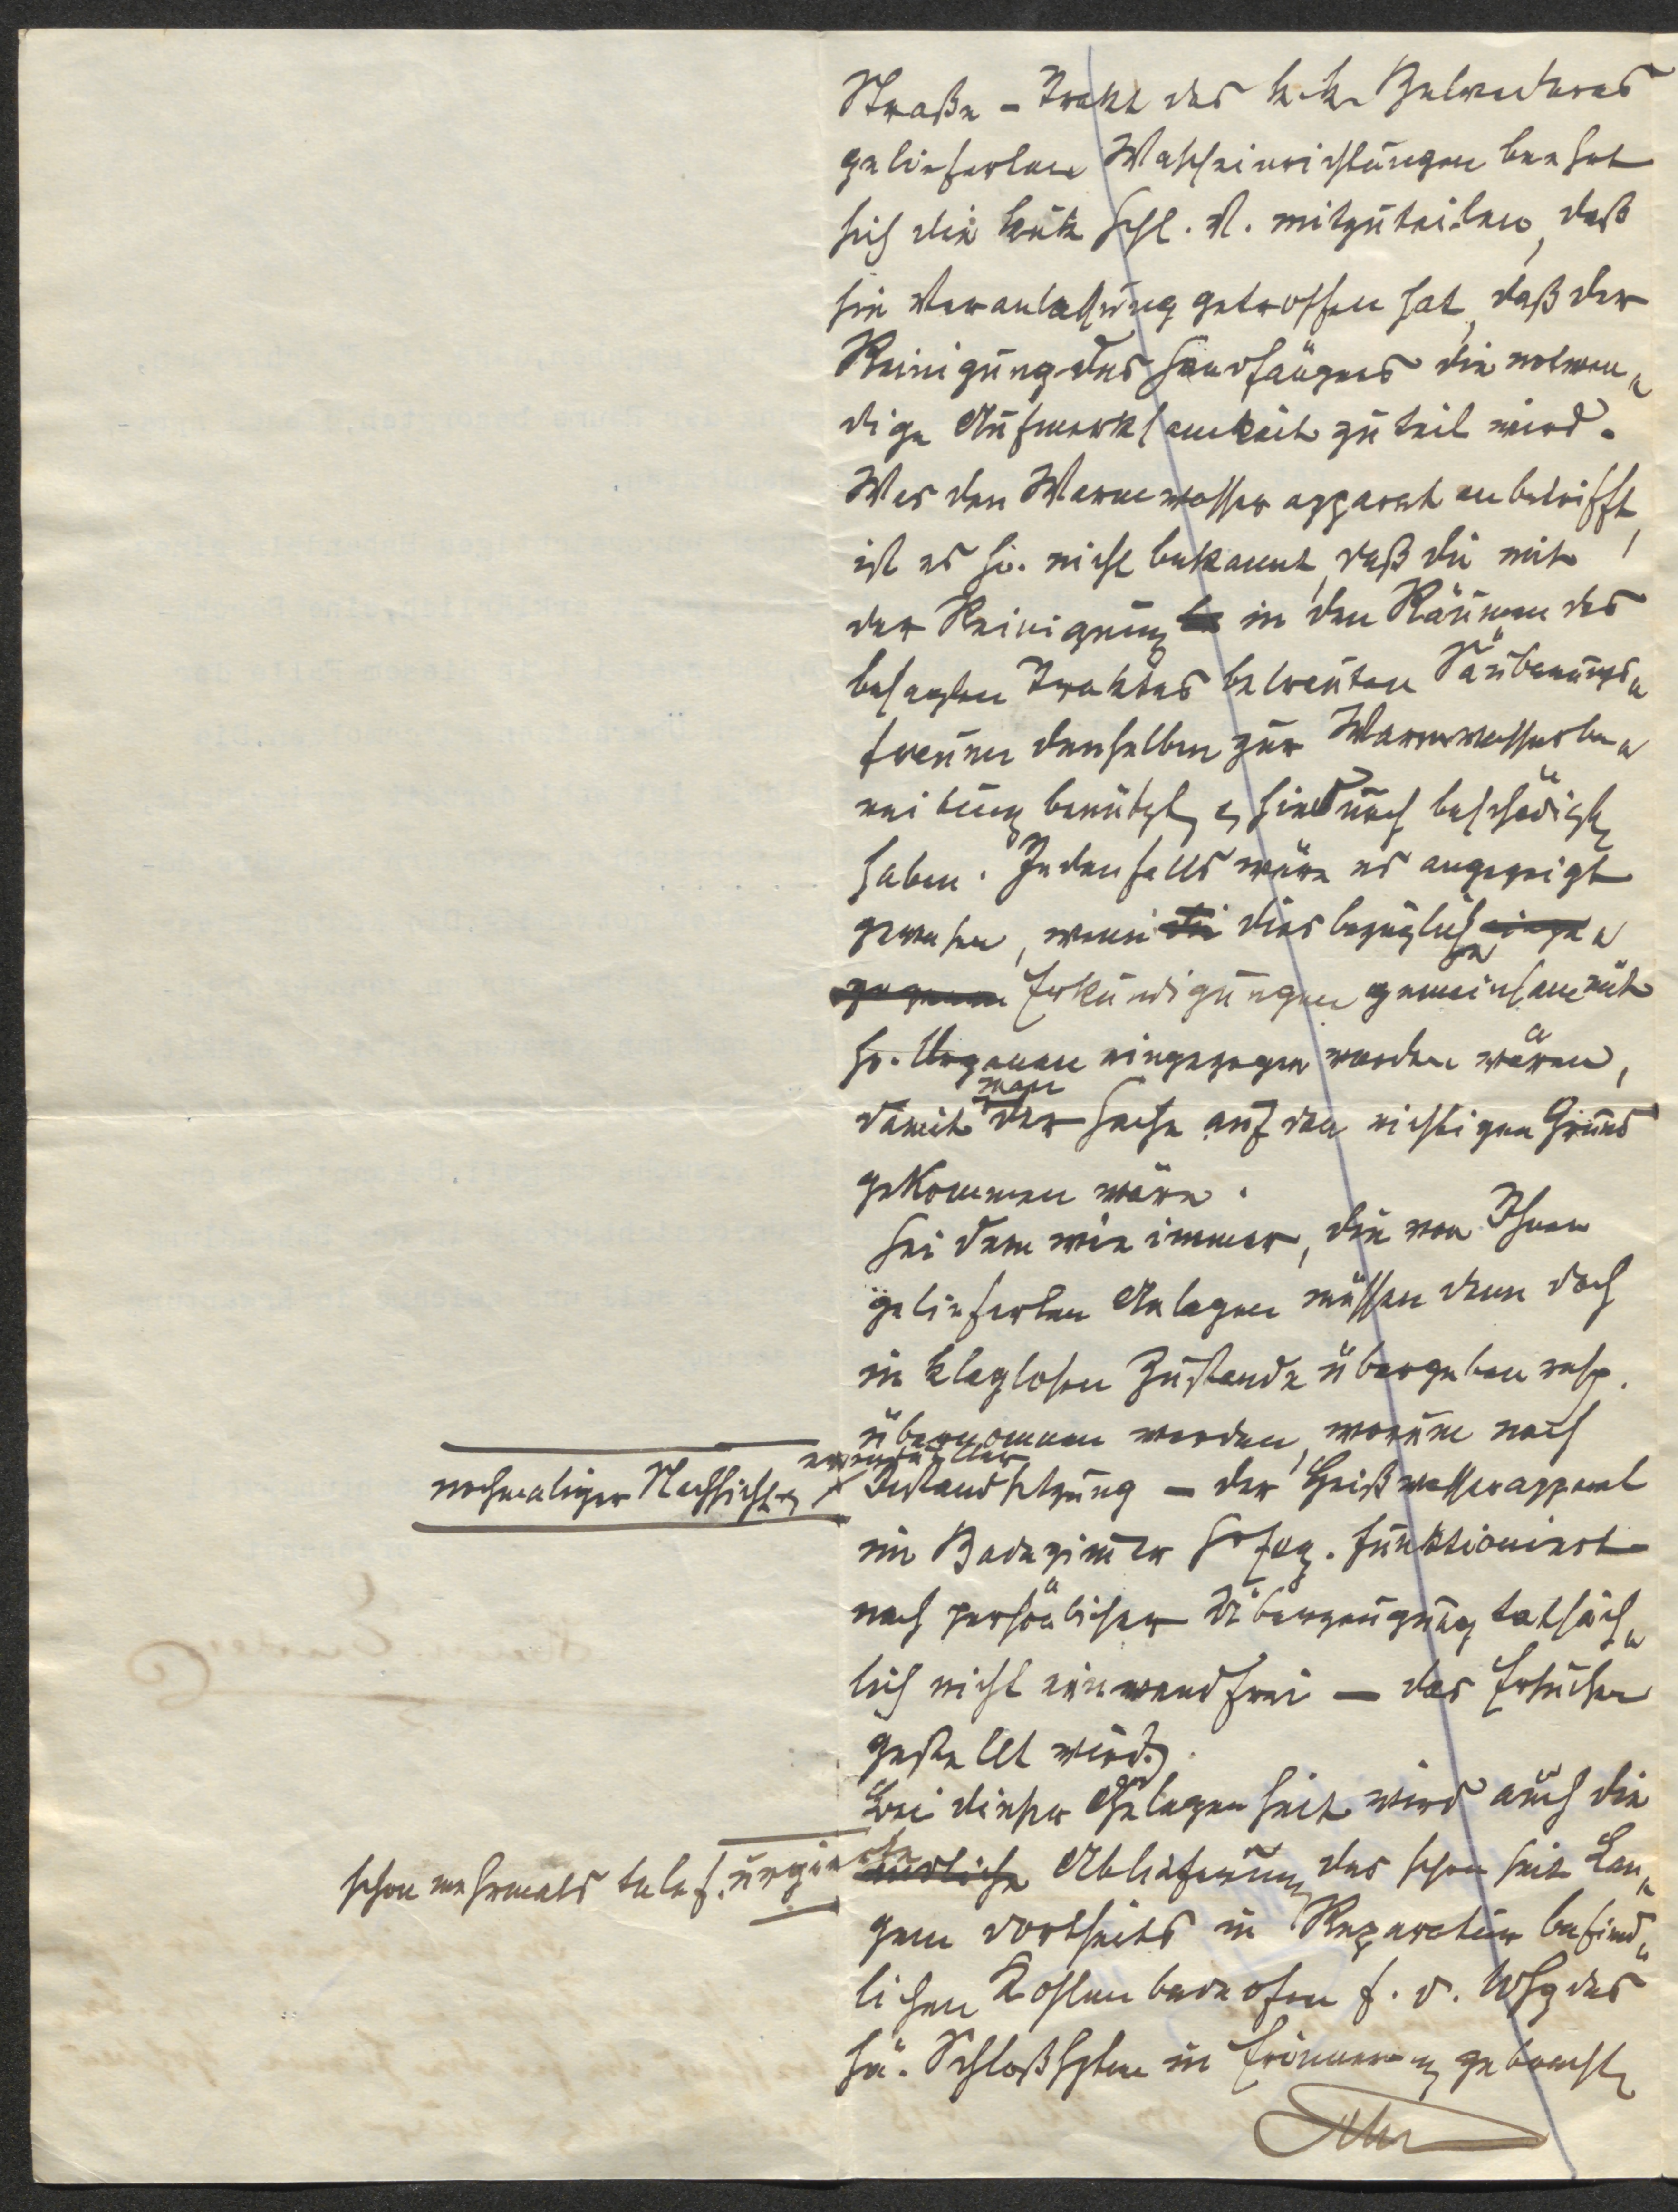 Straße-Trakt des k.k. Belvederes
gelieferten Wascheinrichtungen beehrt
sich die k.u.k. Schl. V. mitzuteilen, daß
sie Veranlassung getroffen hat, daß der
Reinigung des Sandfanges die notwen„
dige Aufmerksamkeit zuteil wird.
Was den Warmwasserapparat anbetrifft,
ist es hs. nicht bekannt, daß die mit
der Reinigung in den Räumen des
besagten Traktes betreuten Säuberungs„
frauen denselben zur Warmwasserbe„
reitung benützt u. hiedurch beschädigt
haben. Jedenfalls wäre es angezeigt
gewesen, wenn diesbezügliche
Erkundigungen gemeinsam mit
hs. Organen eingezogen worden wären,
damit man der Sache auf den richtigen Grund
gekommen wäre.
Sei dem wie immer, die von Ihnen
gelieferten Anlagen müssen denn doch
in klaglosen Zustande übergeben resp.
übernommen werden, warum noch
nochmaliger Nachsicht u. eventueller
Instandsetzung – der Heißwasserapparat
im Badezimmer funktioniert
nach persönlicher Überzeugung tatsäch„
lich nicht einwandfrei – das Ersuchen
gestellt wird.
Bei dieser Gelegenheit wird auch die
schon mehrmals telef. urgierte
Ablieferung des schon seit Lan„
gem dortseits in Reparatur befind„
lichen Kohlenbadeofen f. d. Whg des
Schloßhptm in Erinnerung gebracht